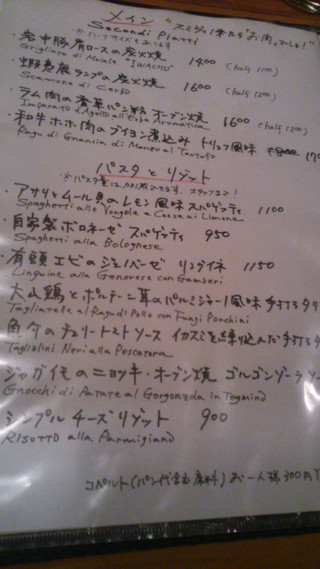 メイン
Secondi Piatti
・岩中豚肩ロースの炭火焼 1400 (half 1100)
Grigliata di Maiale "IWACHU"
・蝦夷鹿ランプの炭火焼 1600 (half 1200)
・ラム肉の香草パン粉 オーブン焼 1600 (half 1200)
・和牛ホホ肉のブイヨン煮込み トリュフ風味
Ragu di Guancia di Manzo al Tartufo
パスタとリゾット
・アサリとムール貝のレモン風味スパゲッティ 1100
Spaghetti alle Vongole e Cozze al Limone
・自家製ボロネーゼ スパゲッティ 950
Spaghetti alla Bolognese
・有頭エビのジェノベーゼ リングイネ 1150
Linguine alla Genovese con Gamberi
大山鶏とポルチーニ茸のパルミジャーノ風味 手打ちタリ
Tagliatelle al Ragu di Pollo con Fungi Porchini
魚介のチェリートマトソース イカスミを練り込んだ手打ちタ
Tagliolini Neri alla Pescatora
ジャガイモのニョッキ・オーブン焼 ゴルゴンゾーラソー
Gnocchi di Patate al Gorgonzola in Tegamino
シンプルチーズリゾット 900
Risotto alla Parmigiano
コペルト(パン代含む席料) お一人様300円